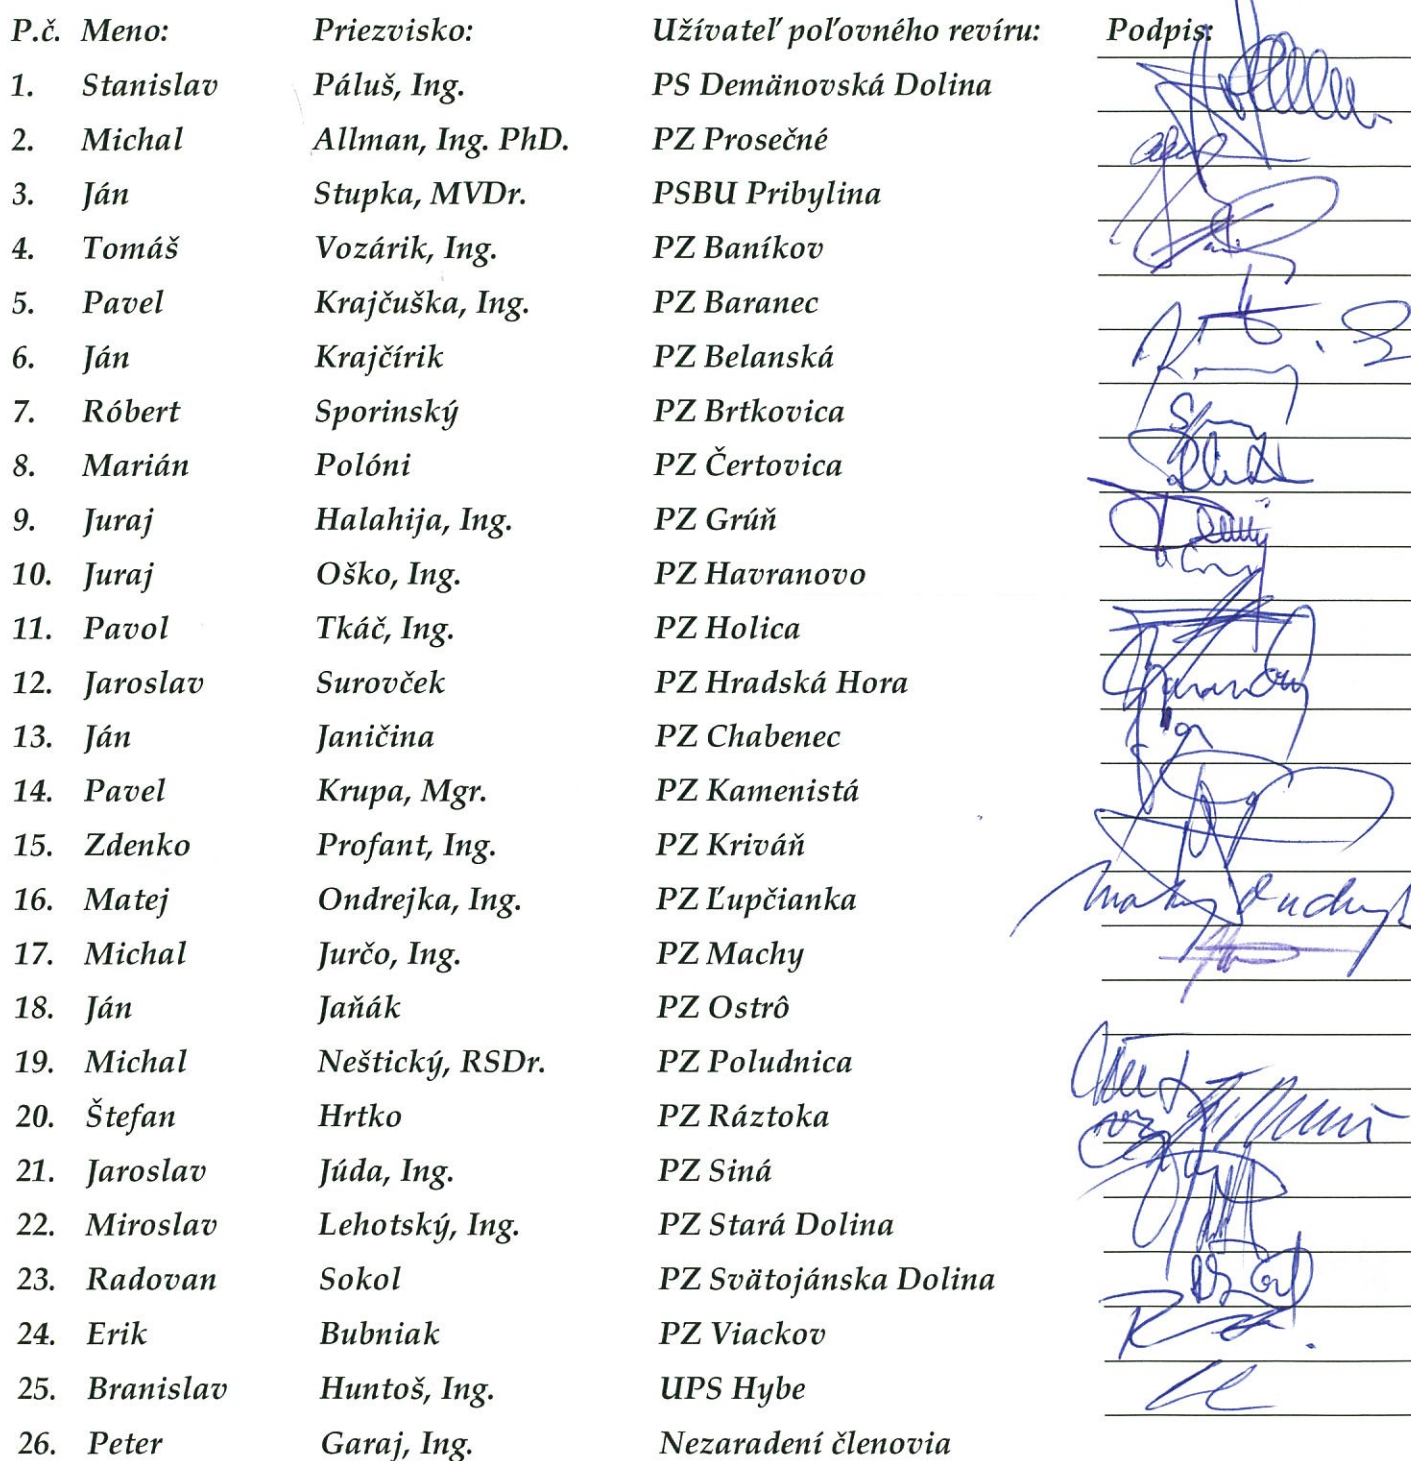 P.č. Meno: Priezvisko: Užívateľ poľovného revíru: Podpis:
1. Stanislav Páluš, Ing. PS Demänovská Dolina
2. Michal Allman, Ing. PhD. PZ Prosečné
3. Ján Stupka, MVDr. PSBU Pribylina
4. Tomáš Vozárik, Ing. PZ Baníkov
5. Pavel Krajčuška, Ing. PZ Baranec
6. Ján Krajčírik PZ Belanská
7. Róbert Sporinský PZ Brtkovica
8. Marián Polóni PZ Čertovica
9. Juraj Halahija, Ing. PZ Grúň
10. Juraj Oško, Ing. PZ Havranovo
11. Pavol Tkáč, Ing. PZ Holica
12. Jaroslav Surovček PZ Hradská Hora
13. Ján Janičina PZ Chabenec
14. Pavel Krupa, Mgr. PZ Kamenistá
15. Zdenko Profant, Ing. PZ Kriváň
16. Matej Ondrejka, Ing. PZ Ľupčianka
17. Michal Jurčo, Ing. PZ Machy
18. Ján Jaňák PZ Ostrô
19. Michal Neštický, RSDr. PZ Poludnica
20. Štefan Hrtko PZ Ráztoka
21. Jaroslav Júda, Ing. PZ Siná
22. Miroslav Lehotský, Ing. PZ Stará Dolina
23. Radovan Sokol PZ Svätojánska Dolina
24. Erik Bubniak PZ Viackov
25. Branislav Huntoš, Ing. UPS Hybe
26. Peter Garaj, Ing. Nezaradení členovia